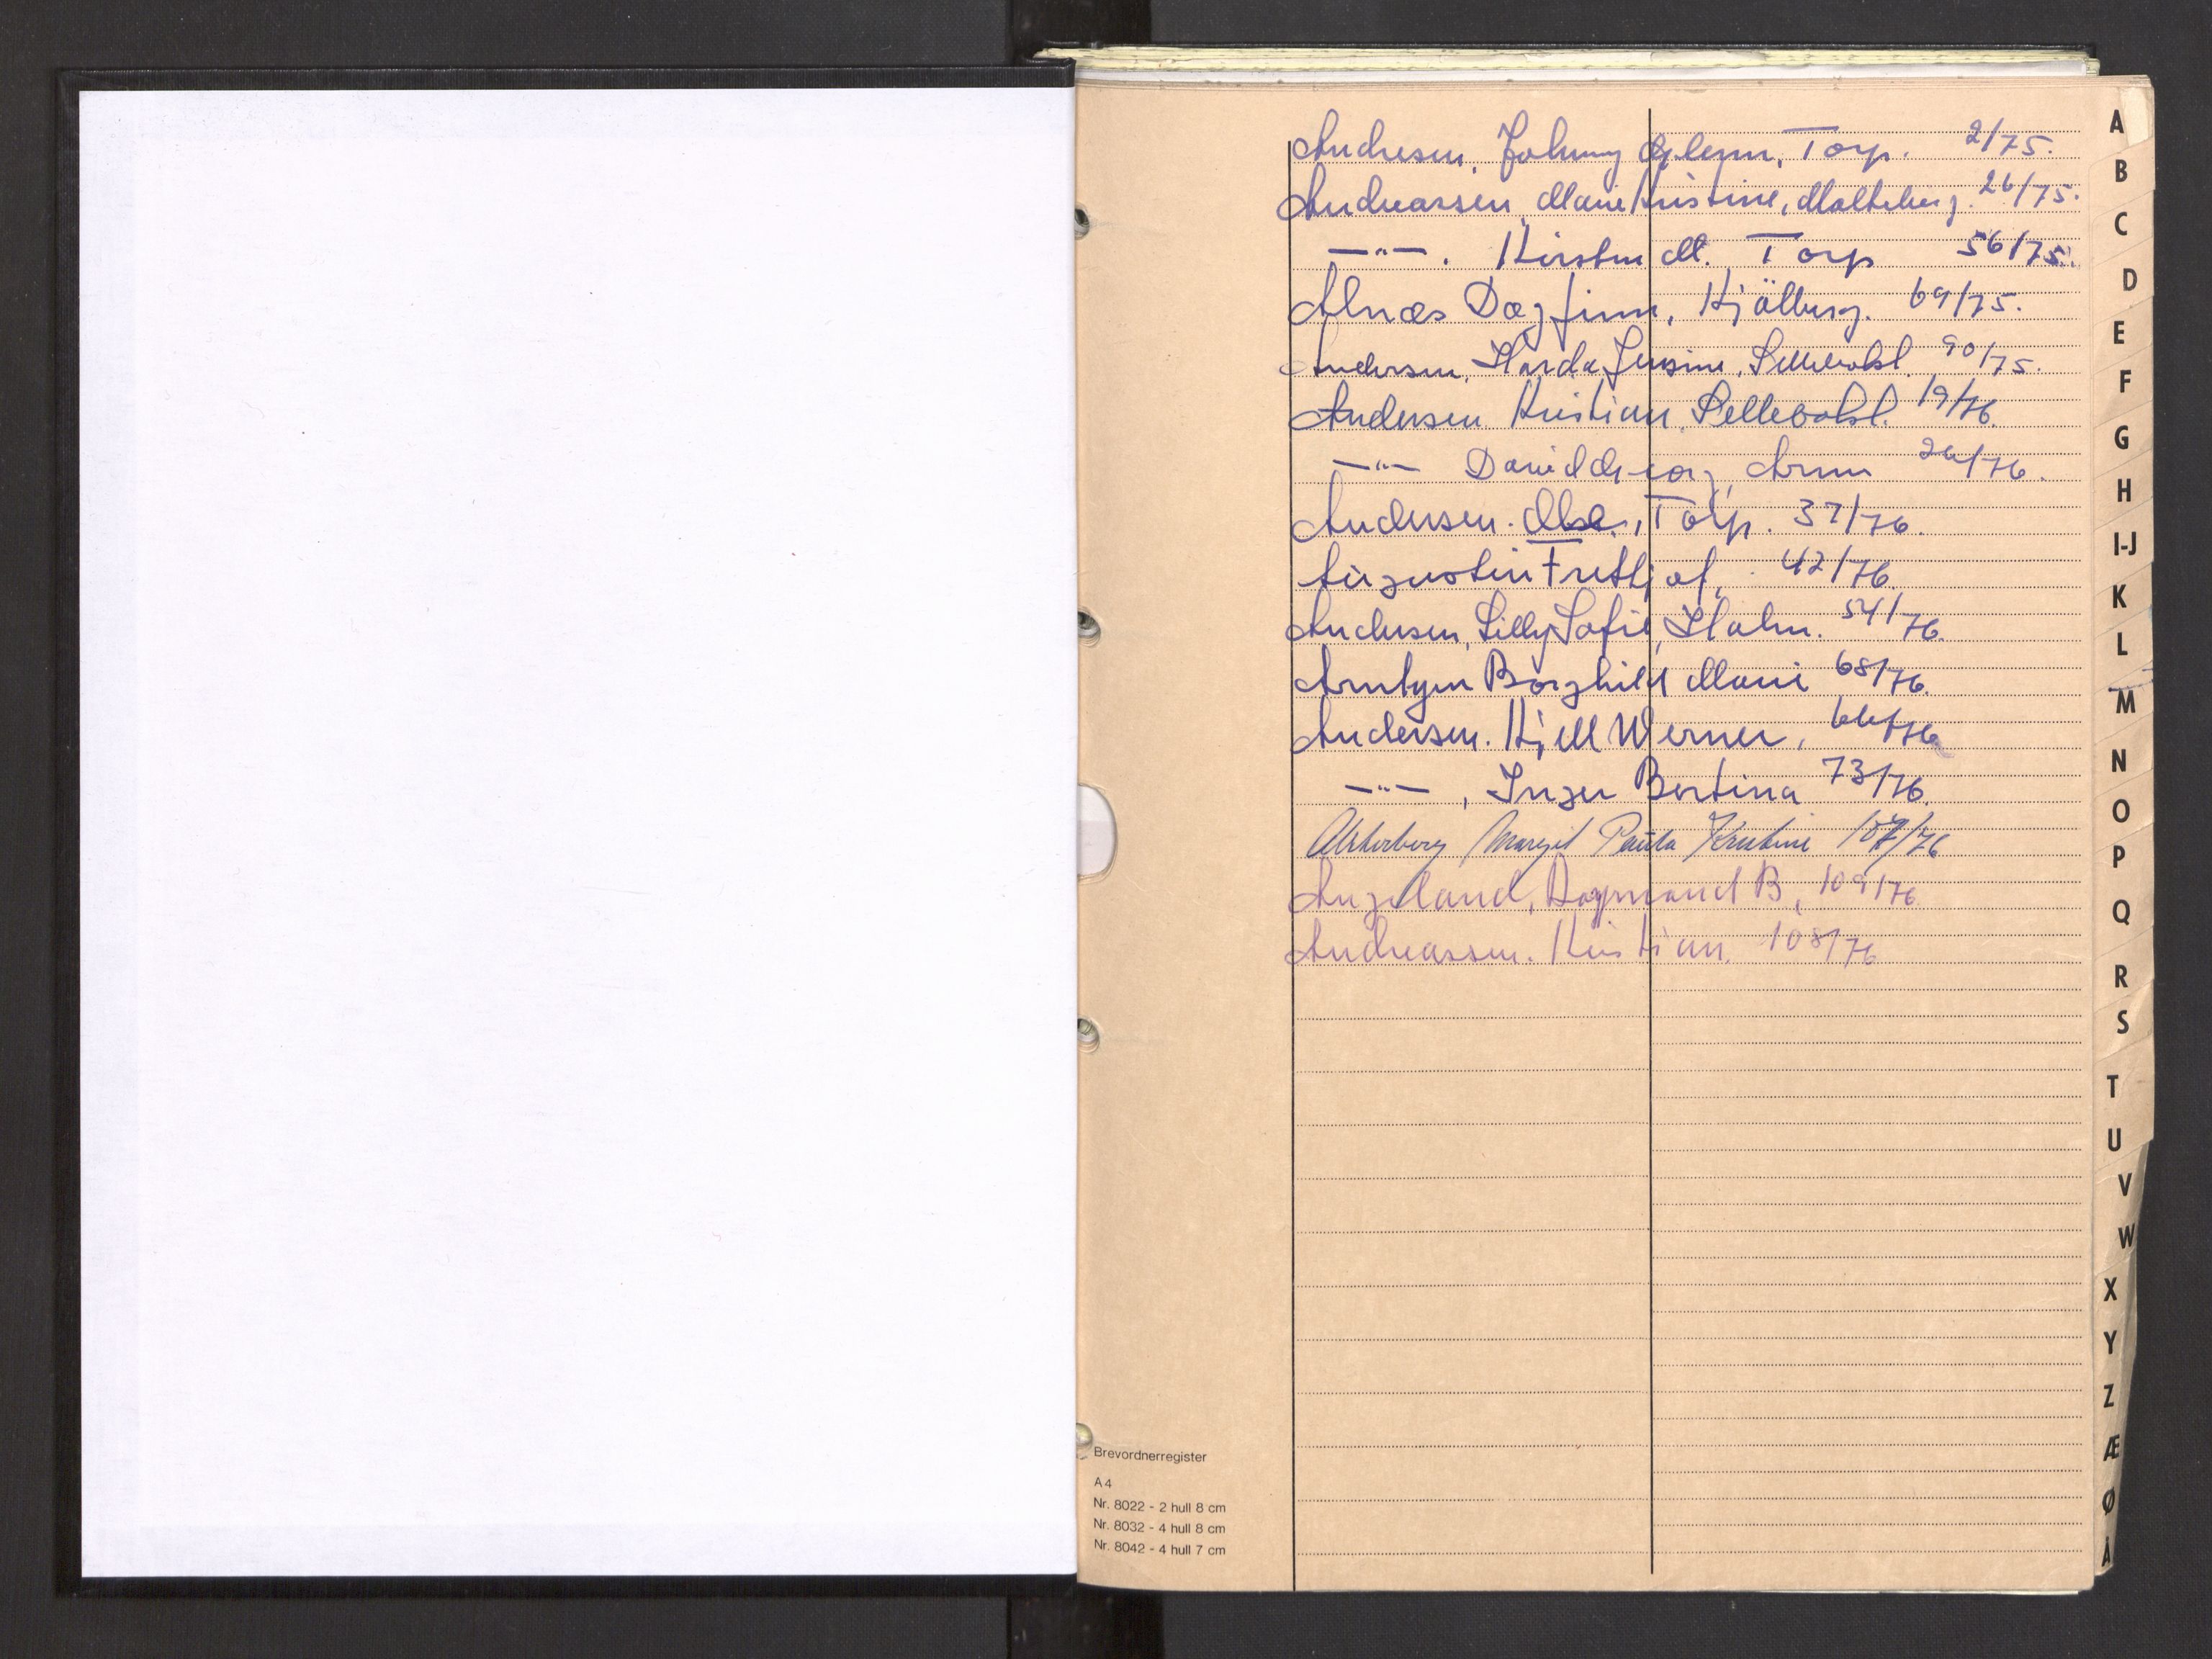 Andresen, Johnny Glenn, Torp. 2/75.
Andreassen, Marie Kristine, Molteberg. 26/75.
—"—. Kirsten M. Torp 56/75.
Alnæs Dagfinn, Kjölberg. 69/75.
Andersen, Harda Jensine, Lillevold. 90/75.
Andersen Kristian, Sellevold. 19/76.
—"— David Georg, Arum 26/76.
Andersen. Torp. 37/76.
Augustin Frithjof, 42/76.
Andersen, Lilly Sofie, Holm. 54/76.
Arntzen Borghild Marie 68/76.
Andersen. Kjell Werner, 66/76
—"—, Inger Bertina 73/76.
Alsterberg Margit Paula Kristine 107/76
Angelland, Raymond B, 109/76
Andreassen. Kristian. 108/76
A
B
C
D
E
F
G
H
I-J
K
L
M
N
O
P
Q
R
S
T
U
V
W
X
Y
Z
Æ
Ø
Å
Brevordnerregister
A 4
Nr. 8022 - 2 hull 8 cm
Nr. 8032 - 4 hull 8 cm
Nr. 8042 - 4 hull 7 cm